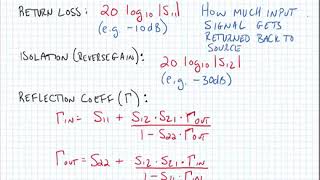 RETURN LOSS: 20 log10 |S11|
(e.g. -10dB)
HOW MUCH INPUT
SIGNAL GETS
RETURNED BACK TO
SOURCE
ISOLATION (REVERSE GAIN): 20 log10 |S12|
(e.g. -30dB)
REFLECTION COEFF (Γ):
ΓIN = S11 + S12 · S21 · ΓOUT
1 - S22 · ΓOUT
ΓOUT = S22 + S12 · S21 · ΓIN
1 - S11 · ΓIN